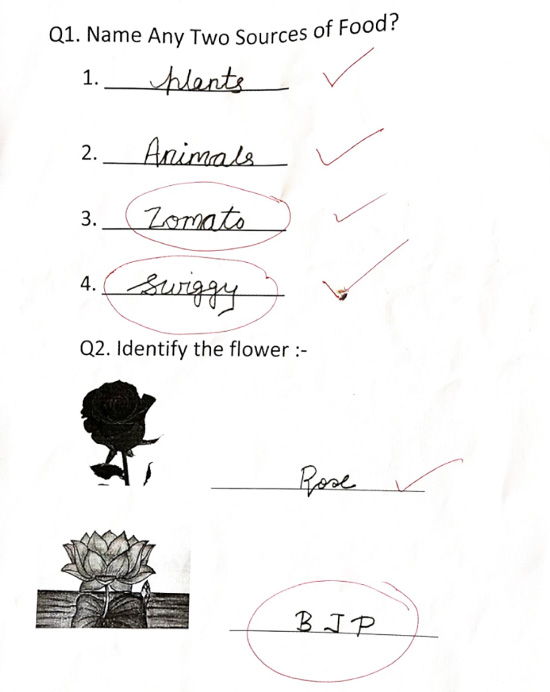 Q1. Name Any Two Sources of Food?
1. plants
2. Animals
3. Zomato
4. Swiggy
Q2. Identify the flower :-
Rose
BJP